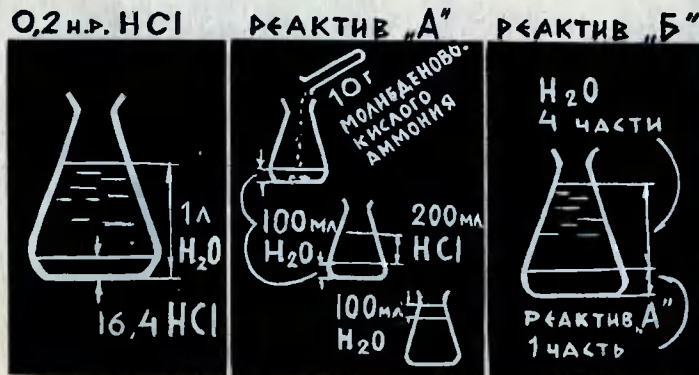 0,2 н.р. HCl
1л
H₂O
16,4 HCl
РЕАКТИВ „А"
10 г
МОЛИБДЕНОВО-
КИСЛОГО
АММОНИЯ
100 МЛ
H₂O
200 МЛ
HCl
100 МЛ
H₂O
РЕАКТИВ „Б"
H₂O
4 ЧАСТИ
РЕАКТИВ „А"
1 ЧАСТЬ